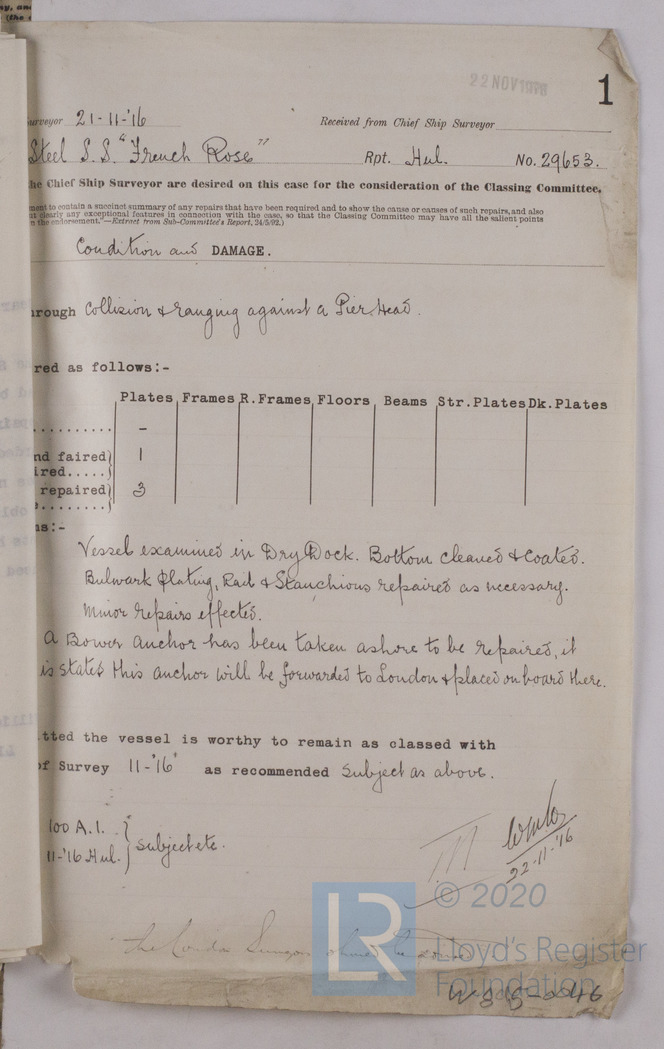 22 NOV 1916
1
urveyor 21-11-'16 Received from Chief Ship Surveyor
Steel S.S. "French Rose" Rpt. Hul. No. 29653.
he Chief Ship Surveyor are desired on this case for the consideration of the Classing Committee.
ment to contain a succinct summary of any repairs that have been required and to show the cause or causes of such repairs, and also
ut clearly any exceptional features in connection with the case, so that the Classing Committee may have all the salient points
n the endorsement."—Extract from Sub-Committee's Report, 24/5/92.)
Condition and DAMAGE.
hrough Collision & ranging against a Pier Head.
red as follows:-
Plates Frames R.Frames Floors Beams Str.Plates Dk.Plates
.......... -
nd faired) 1
ired.....)
repaired) 3
e........)
ns:-
Vessel examined in Dry Dock. Bottom cleaned & coated.
Bulwark plating, Rail & Stanchions repaired as necessary.
Minor repairs effected.
A Bower anchor has been taken ashore to be repaired, it
is stated this anchor will be forwarded to London & placed on board there.
tted the vessel is worthy to remain as classed with
of Survey 11-'16 as recommended subject as above.
100 A.1. } subject etc.
11-'16 Hul.
22-11-'16
the London Surveyors should be
LR © 2020
Lloyd's Register
Foundation
W515-0046